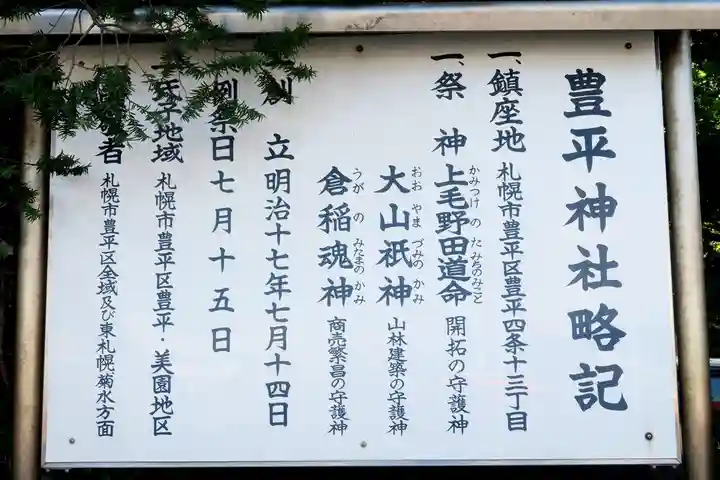 豊平神社略記
一、鎮座地 札幌市豊平区豊平四条十三丁目
一、祭神 上毛野田道命 開拓の守護神
かみつけ の た みちのみこと
大山祇神 山林建築の守護神
おお やま づみの かみ
倉稲魂神 商売繁昌の守護神
うが の みたまの かみ
創立 明治十七年七月十四日
例祭日 七月十五日
氏子地域 札幌市豊平区豊平・美園地区
者 札幌市豊平区全域及び東札幌、菊水方面